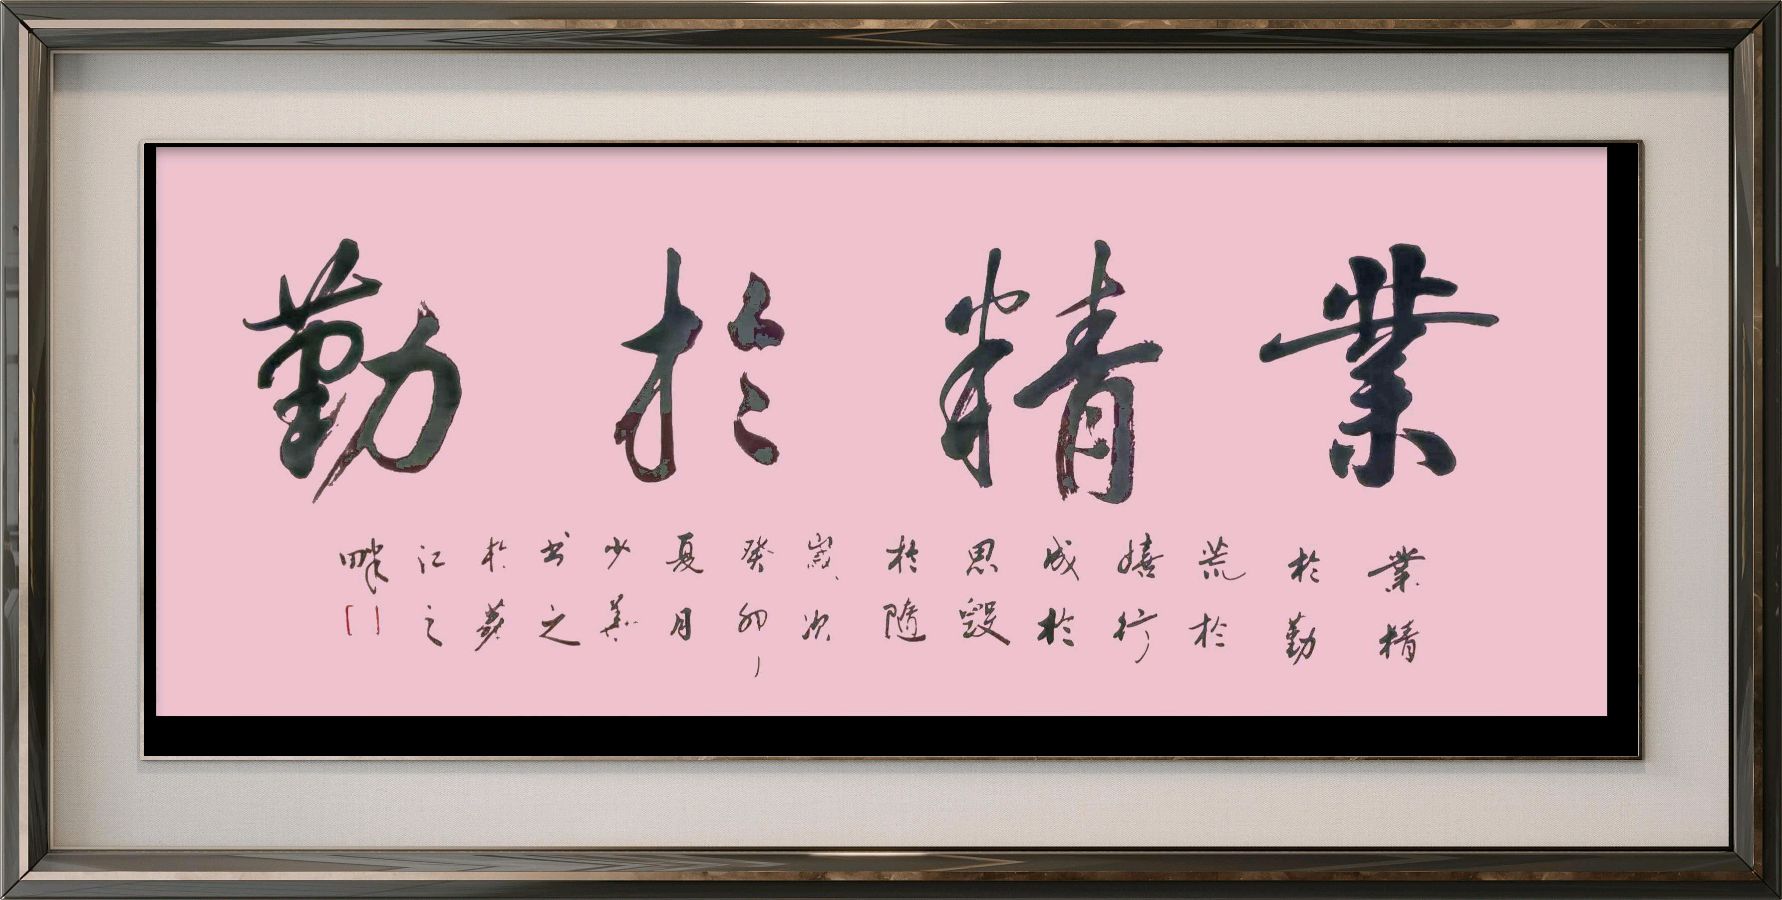 業精於勤
業精
於勤
荒於
嬉行
成於
思毀
於隨
歲次
癸卯
夏月
少華
书之
於
江之
畔